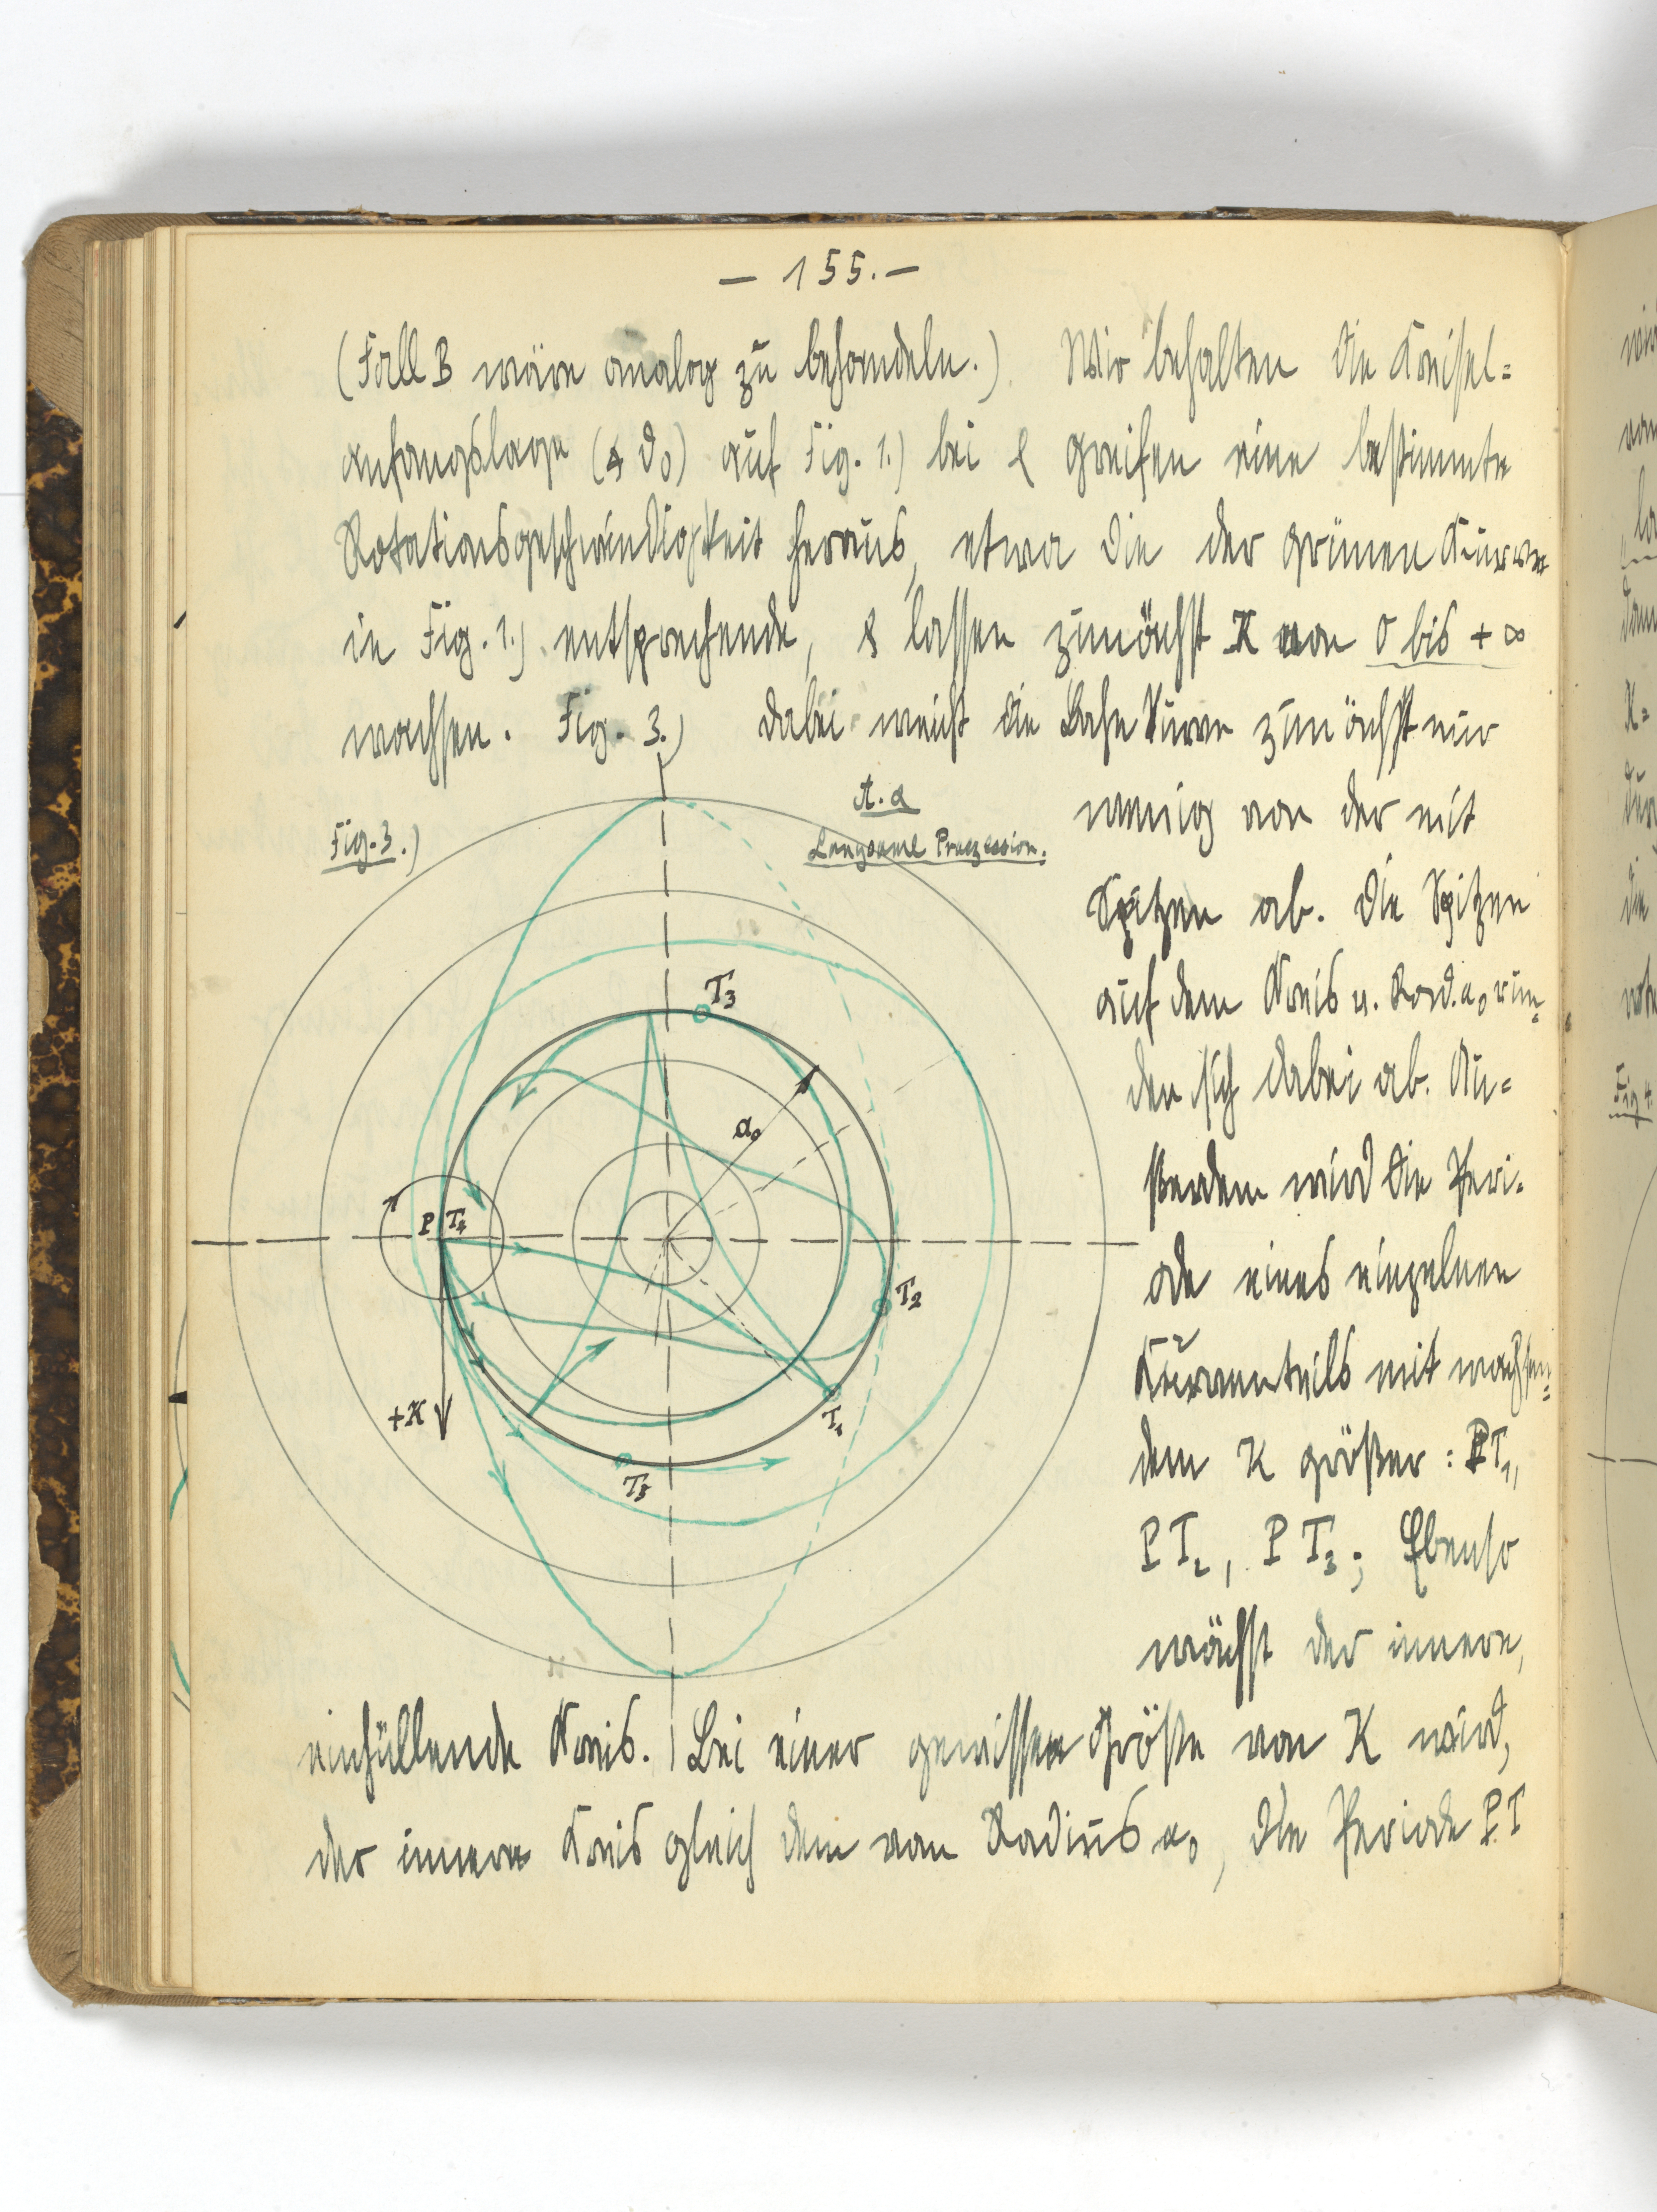 — 155. —
(Fall B wäre analog zu behandeln.) Wir behalten die Kreisel=
anfangslage (∢ ϑ₀) auf Fig. 1.) bei & greifen eine bestimmte
Rotationsgeschwindigkeit heraus, etwa die der grünen Kurve
in Fig. 1.) entsprechende, & lassen zunächst K von 0 bis + ∞
wachsen. Fig. 3.) Dabei weicht die Bahnkurve zunächst nur
Fig. 3.)
A. a
Langsame Praezession.
wenig von der mit
Spitzen ab. Die Spitzen
auf dem Kreis v. Rad. a₀ run=
den sich dabei ab. Au=
sserdem wird die Peri=
ode eines einzelnen
Kurventeils mit wachsen=
dem K größer: PT₁,
PT₂, PT₃; Ebenso
wächst der innere,
einhüllende Kreis. Bei einer gewissen Größe von K wird,
der innere Kreis gleich dem vom Radius a₀, die Periode PT
T₃
a₀
P
T₄
T₂
+K
T₁